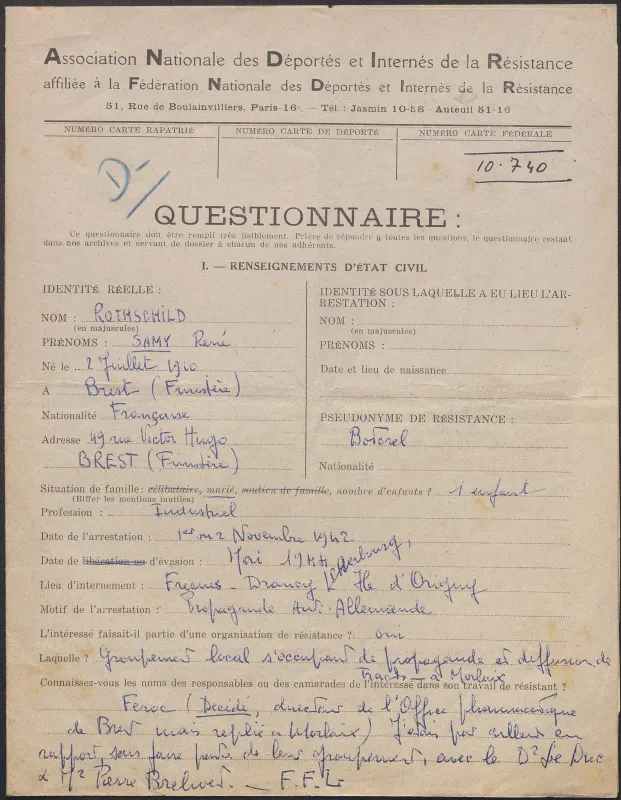 Association Nationale des Déportés et Internés de la Résistance
affiliée à la Fédération Nationale des Déportés et Internés de la Résistance
51, Rue de Boulainvilliers, Paris-16e. — Tél. : Jasmin 10-58 - Auteuil 51-16
NUMÉRO CARTE RAPATRIÉ
NUMÉRO CARTE DE DÉPORTÉ
NUMÉRO CARTE FÉDÉRALE
10.740
D-/
QUESTIONNAIRE :
Ce questionnaire doit être rempli très lisiblement. Prière de répondre à toutes les questions, le questionnaire restant
dans nos archives et servant de dossier à chacun de nos adhérents.
I. — RENSEIGNEMENTS D'ÉTAT CIVIL
IDENTITÉ RÉELLE :
NOM : ROTHSCHILD
(en majuscules)
PRÉNOMS : SAMY René
Né le .. 2 Juillet 1910
A Brest (Finistère)
Nationalité Française
Adresse 49 rue Victor Hugo
BREST (Finistère)
IDENTITÉ SOUS LAQUELLE A EU LIEU L'AR-
RESTATION :
NOM :
(en majuscules)
PRÉNOMS :
Date et lieu de naissance
PSEUDONYME DE RÉSISTANCE :
Botorel
Nationalité
Situation de famille: célibataire, marié, soutien de famille, nombre d'enfants ? 1 enfant
(Biffer les mentions inutiles)
Profession : Industriel
Date de l'arrestation : 1er ou 2 Novembre 1942
Date de libération ou d'évasion : Mai 1944 Cherbourg,
Lieu d'internement : Fresnes - Drancy L'Ile d'Origny
Motif de l'arrestation : Propagande Anti-Allemande
L'intéressé faisait-il partie d'une organisation de résistance ? oui
Laquelle ? Groupement local s'occupant de propagande et diffusion de
Tracts — à Morlaix
Connaissez-vous les noms des responsables ou des camarades de l'intéressé dans son travail de résistant ?
Feroc (Décédé, directeur de l'Office pharmaceutique
de Brest mais replié à Morlaix) J'étais par ailleurs en
rapport, sans faire partie de leur groupement, avec le Dr Le Duc
& Me Pierre Brelivet. — F.F.L